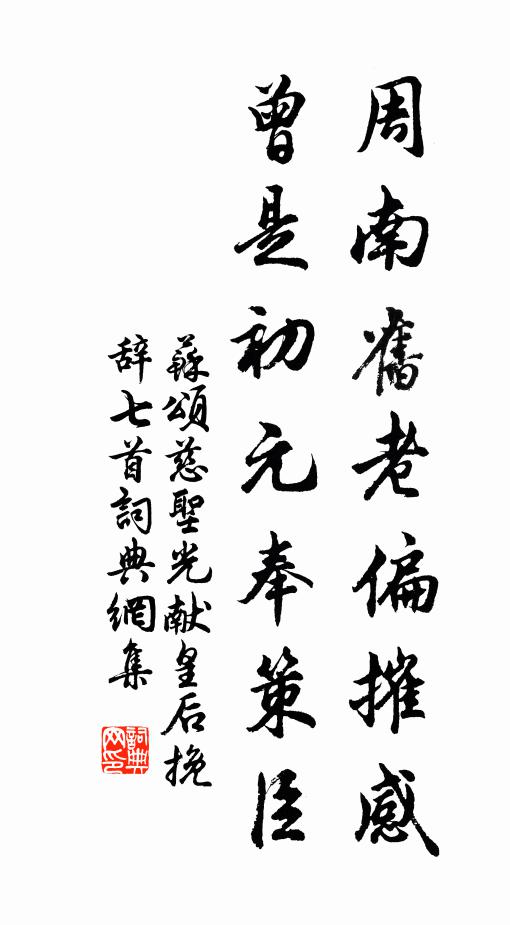 周南舊老偏摧感
曾是初元奉策臣
蘇頌慈聖光献皇后挽
辞七首詞典網集
詞典网印